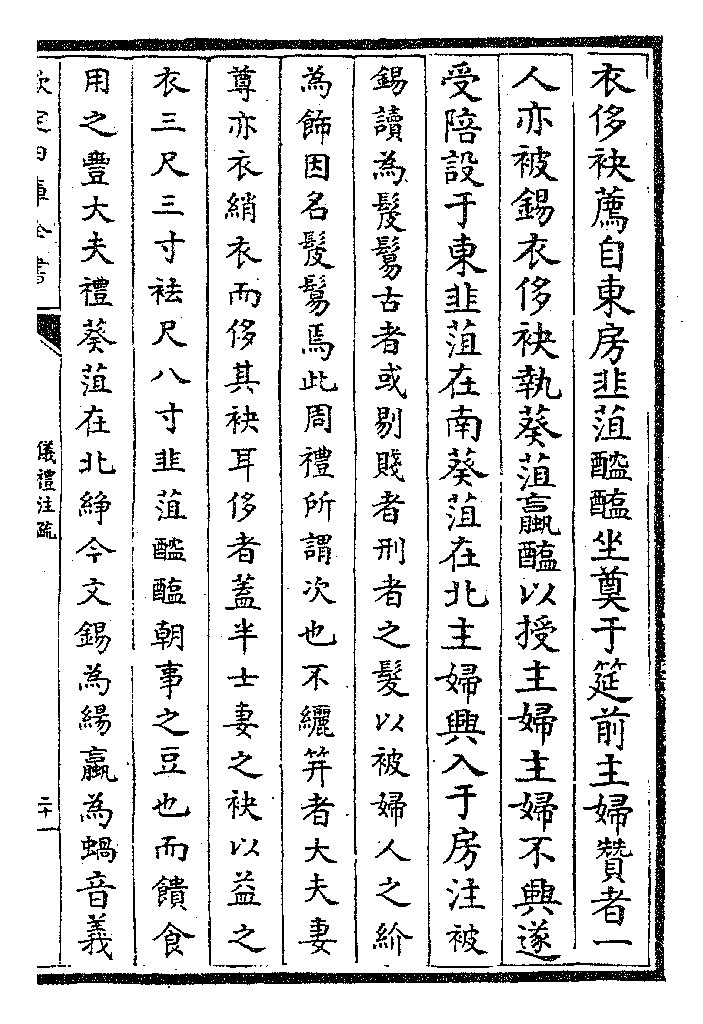 衣侈袂薦自東房韭菹醓醢坐奠于筵前主婦贊者一
人亦被錫衣侈袂執葵菹蠃醢以授主婦主婦不興遂
受陪設于東韭菹在南葵菹在北主婦興入于房注被
錫讀為髲鬄古者或剔賤者刑者之髮以被婦人之紒
為飾因名髲鬄焉此周禮所謂次也不纚筓者大夫妻
尊亦衣綃衣而侈其袂耳侈者蓋半士妻之袂以益之
衣三尺三寸袪尺八寸韭菹醓醢朝事之豆也而饋食
用之豐大夫禮葵菹在北綪今文錫為緆蠃為蝸音義
欽定四庫全書
儀禮注疏
二十一